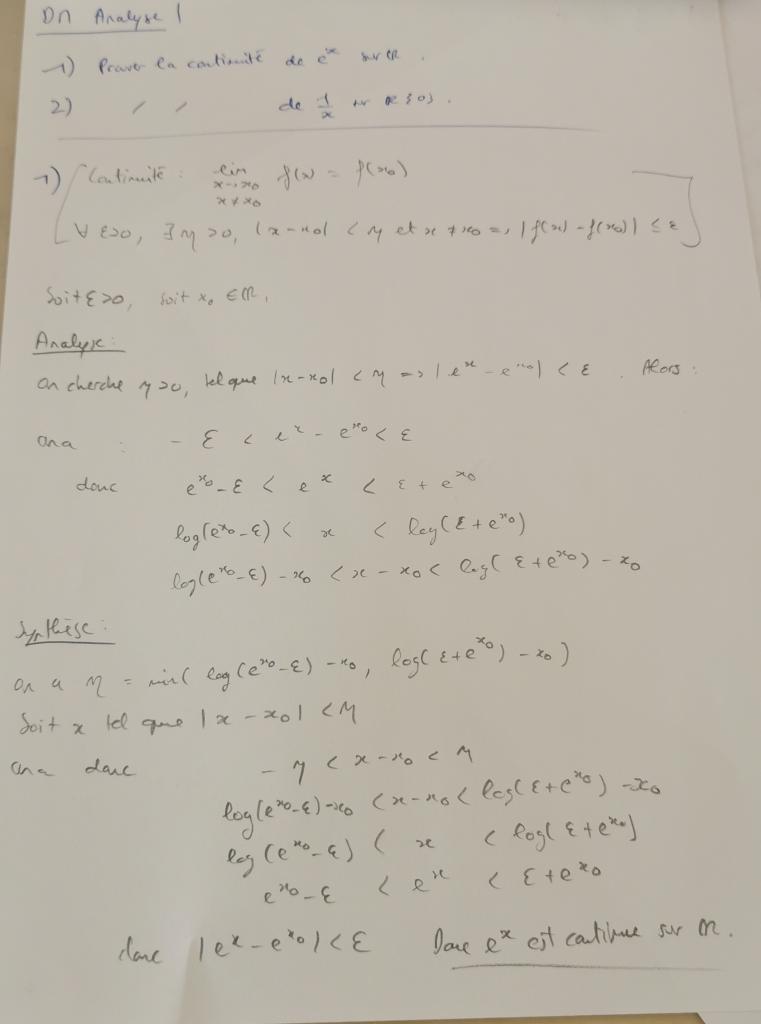 DM Analyse 1
1) Prouver la continuité de e^x sur ℝ.
2) / / de 1/x sur ℝ\{0}.
1) Continuité : lim f(x) = f(x₀)
x→x₀
x≠x₀
∀ ε>0, ∃ η >0, |x-x₀| < η et x ≠ x₀ => |f(x) - f(x₀)| ≤ ε
Soit ε>0, soit x₀ ∈ ℝ.
Analyse :
On cherche η >0, tel que |x-x₀| < η => |e^x - e^x₀| < ε . Alors :
on a : - ε < e^x - e^x₀ < ε
donc e^x₀ - ε < e^x < ε + e^x₀
log(e^x₀ - ε) < x < log(ε + e^x₀)
log(e^x₀ - ε) - x₀ < x - x₀ < log(ε + e^x₀) - x₀
Synthèse :
On a η = min( log(e^x₀ - ε) - x₀, log(ε + e^x₀) - x₀ )
Soit x tel que |x - x₀| < η
on a donc - η < x - x₀ < η
log(e^x₀ - ε) - x₀ < x - x₀ < log(ε + e^x₀) - x₀
log(e^x₀ - ε) < x < log(ε + e^x₀)
e^x₀ - ε < e^x < ε + e^x₀
donc |e^x - e^x₀| < ε Donc e^x est continue sur ℝ.